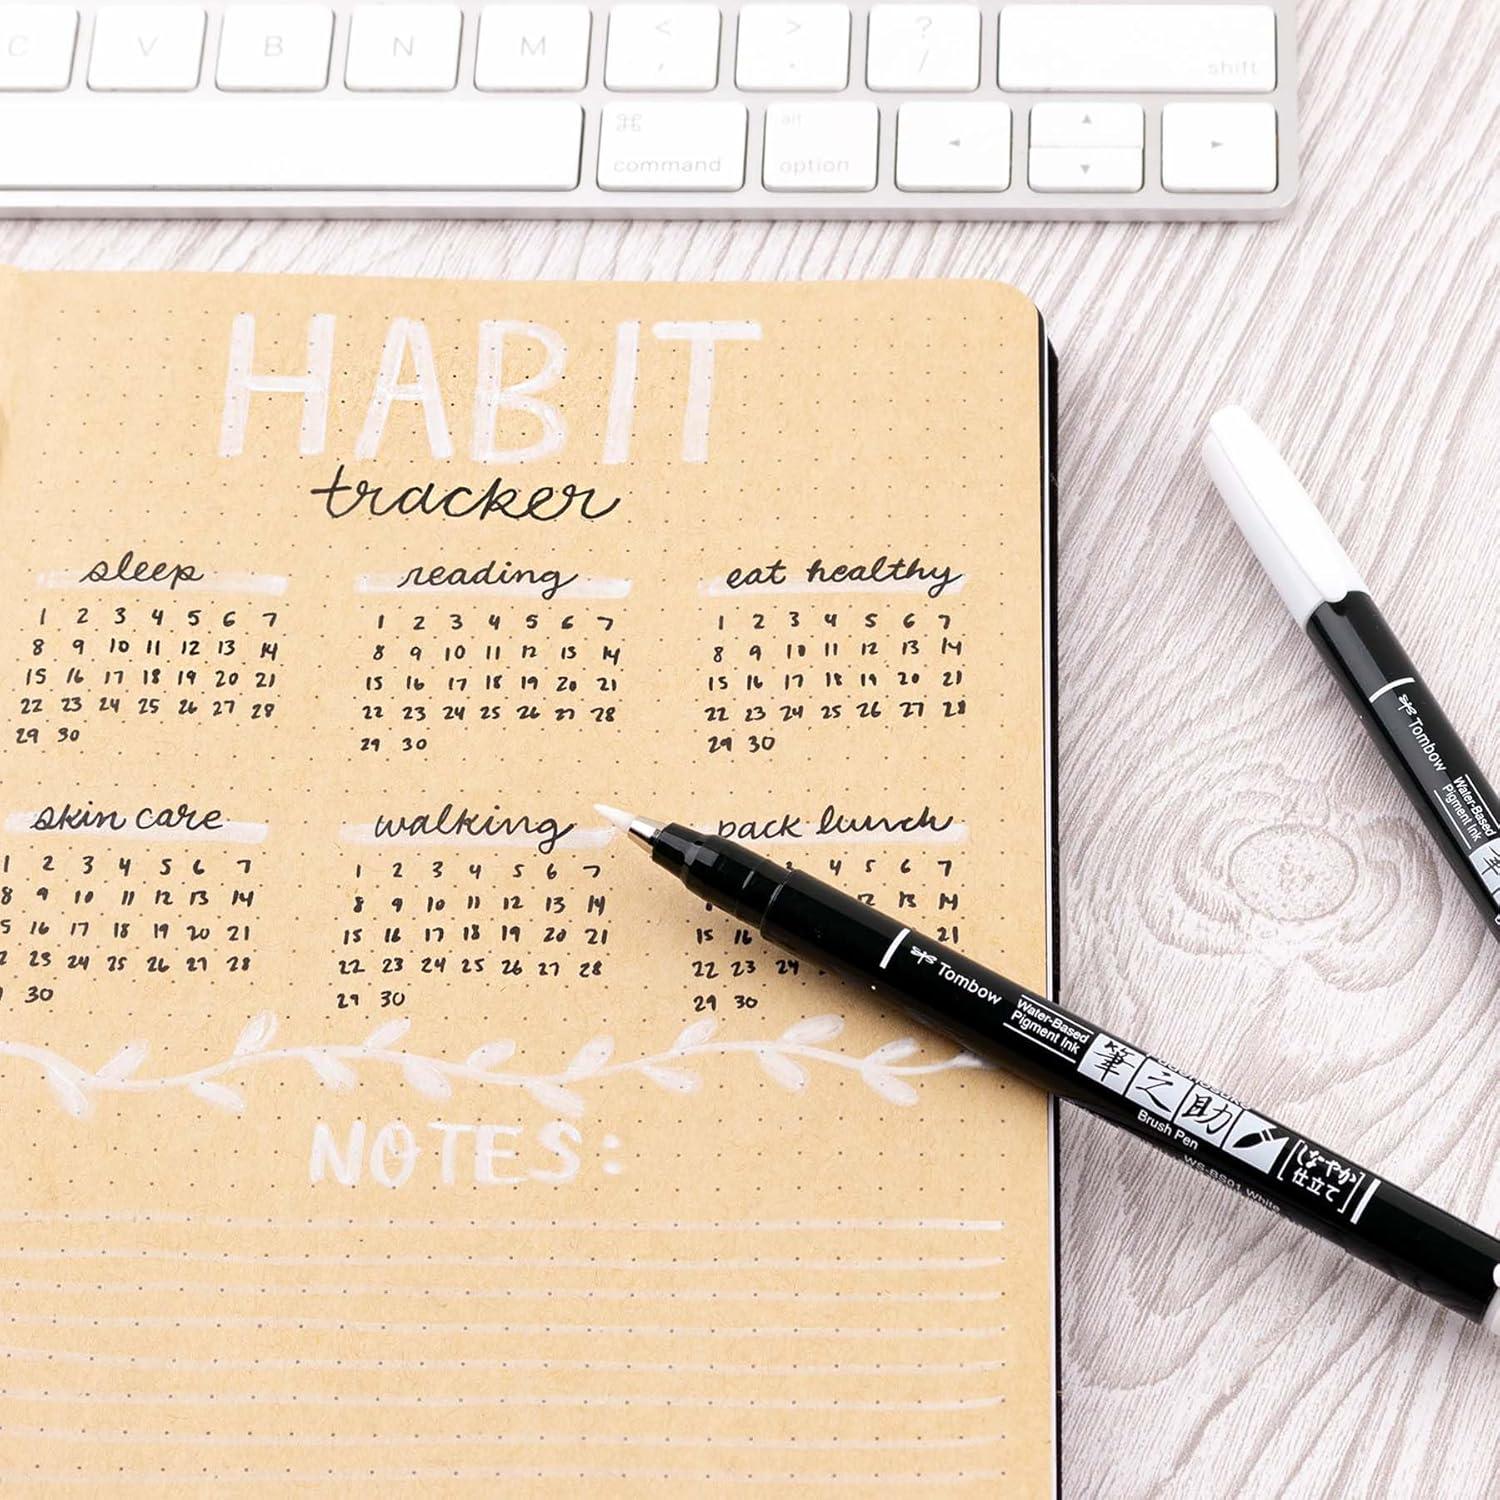 C V B N M < , > . ? / shift
⌘ command alt option ◄ ▲ ▼ ►
HABIT
tracker
sleep
1 2 3 4 5 6 7
8 9 10 11 12 13 14
15 16 17 18 19 20 21
22 23 24 25 26 27 28
29 30
reading
1 2 3 4 5 6 7
8 9 10 11 12 13 14
15 16 17 18 19 20 21
22 23 24 25 26 27 28
29 30
eat healthy
1 2 3 4 5 6 7
8 9 10 11 12 13 14
15 16 17 18 19 20 21
22 23 24 25 26 27 28
29 30
skin care
1 2 3 4 5 6 7
8 9 10 11 12 13 14
5 16 17 18 19 20 21
2 23 24 25 26 27 28
30
walking
1 2 3 4 5 6 7
8 9 10 11 12 13 14
15 16 17 18 19 20 21
22 23 24 25 26 27 28
29 30
pack lunch
3 4 5 6 7
12 13 14
15 16 21
22 23 24
29 30
NOTES:
Tombow
Water-Based
Pigment Ink
筆之助
Brush Pen
しなやか
仕立て
WS-BS01 White
Tombow
Water-Based
Pigment Ink
筆